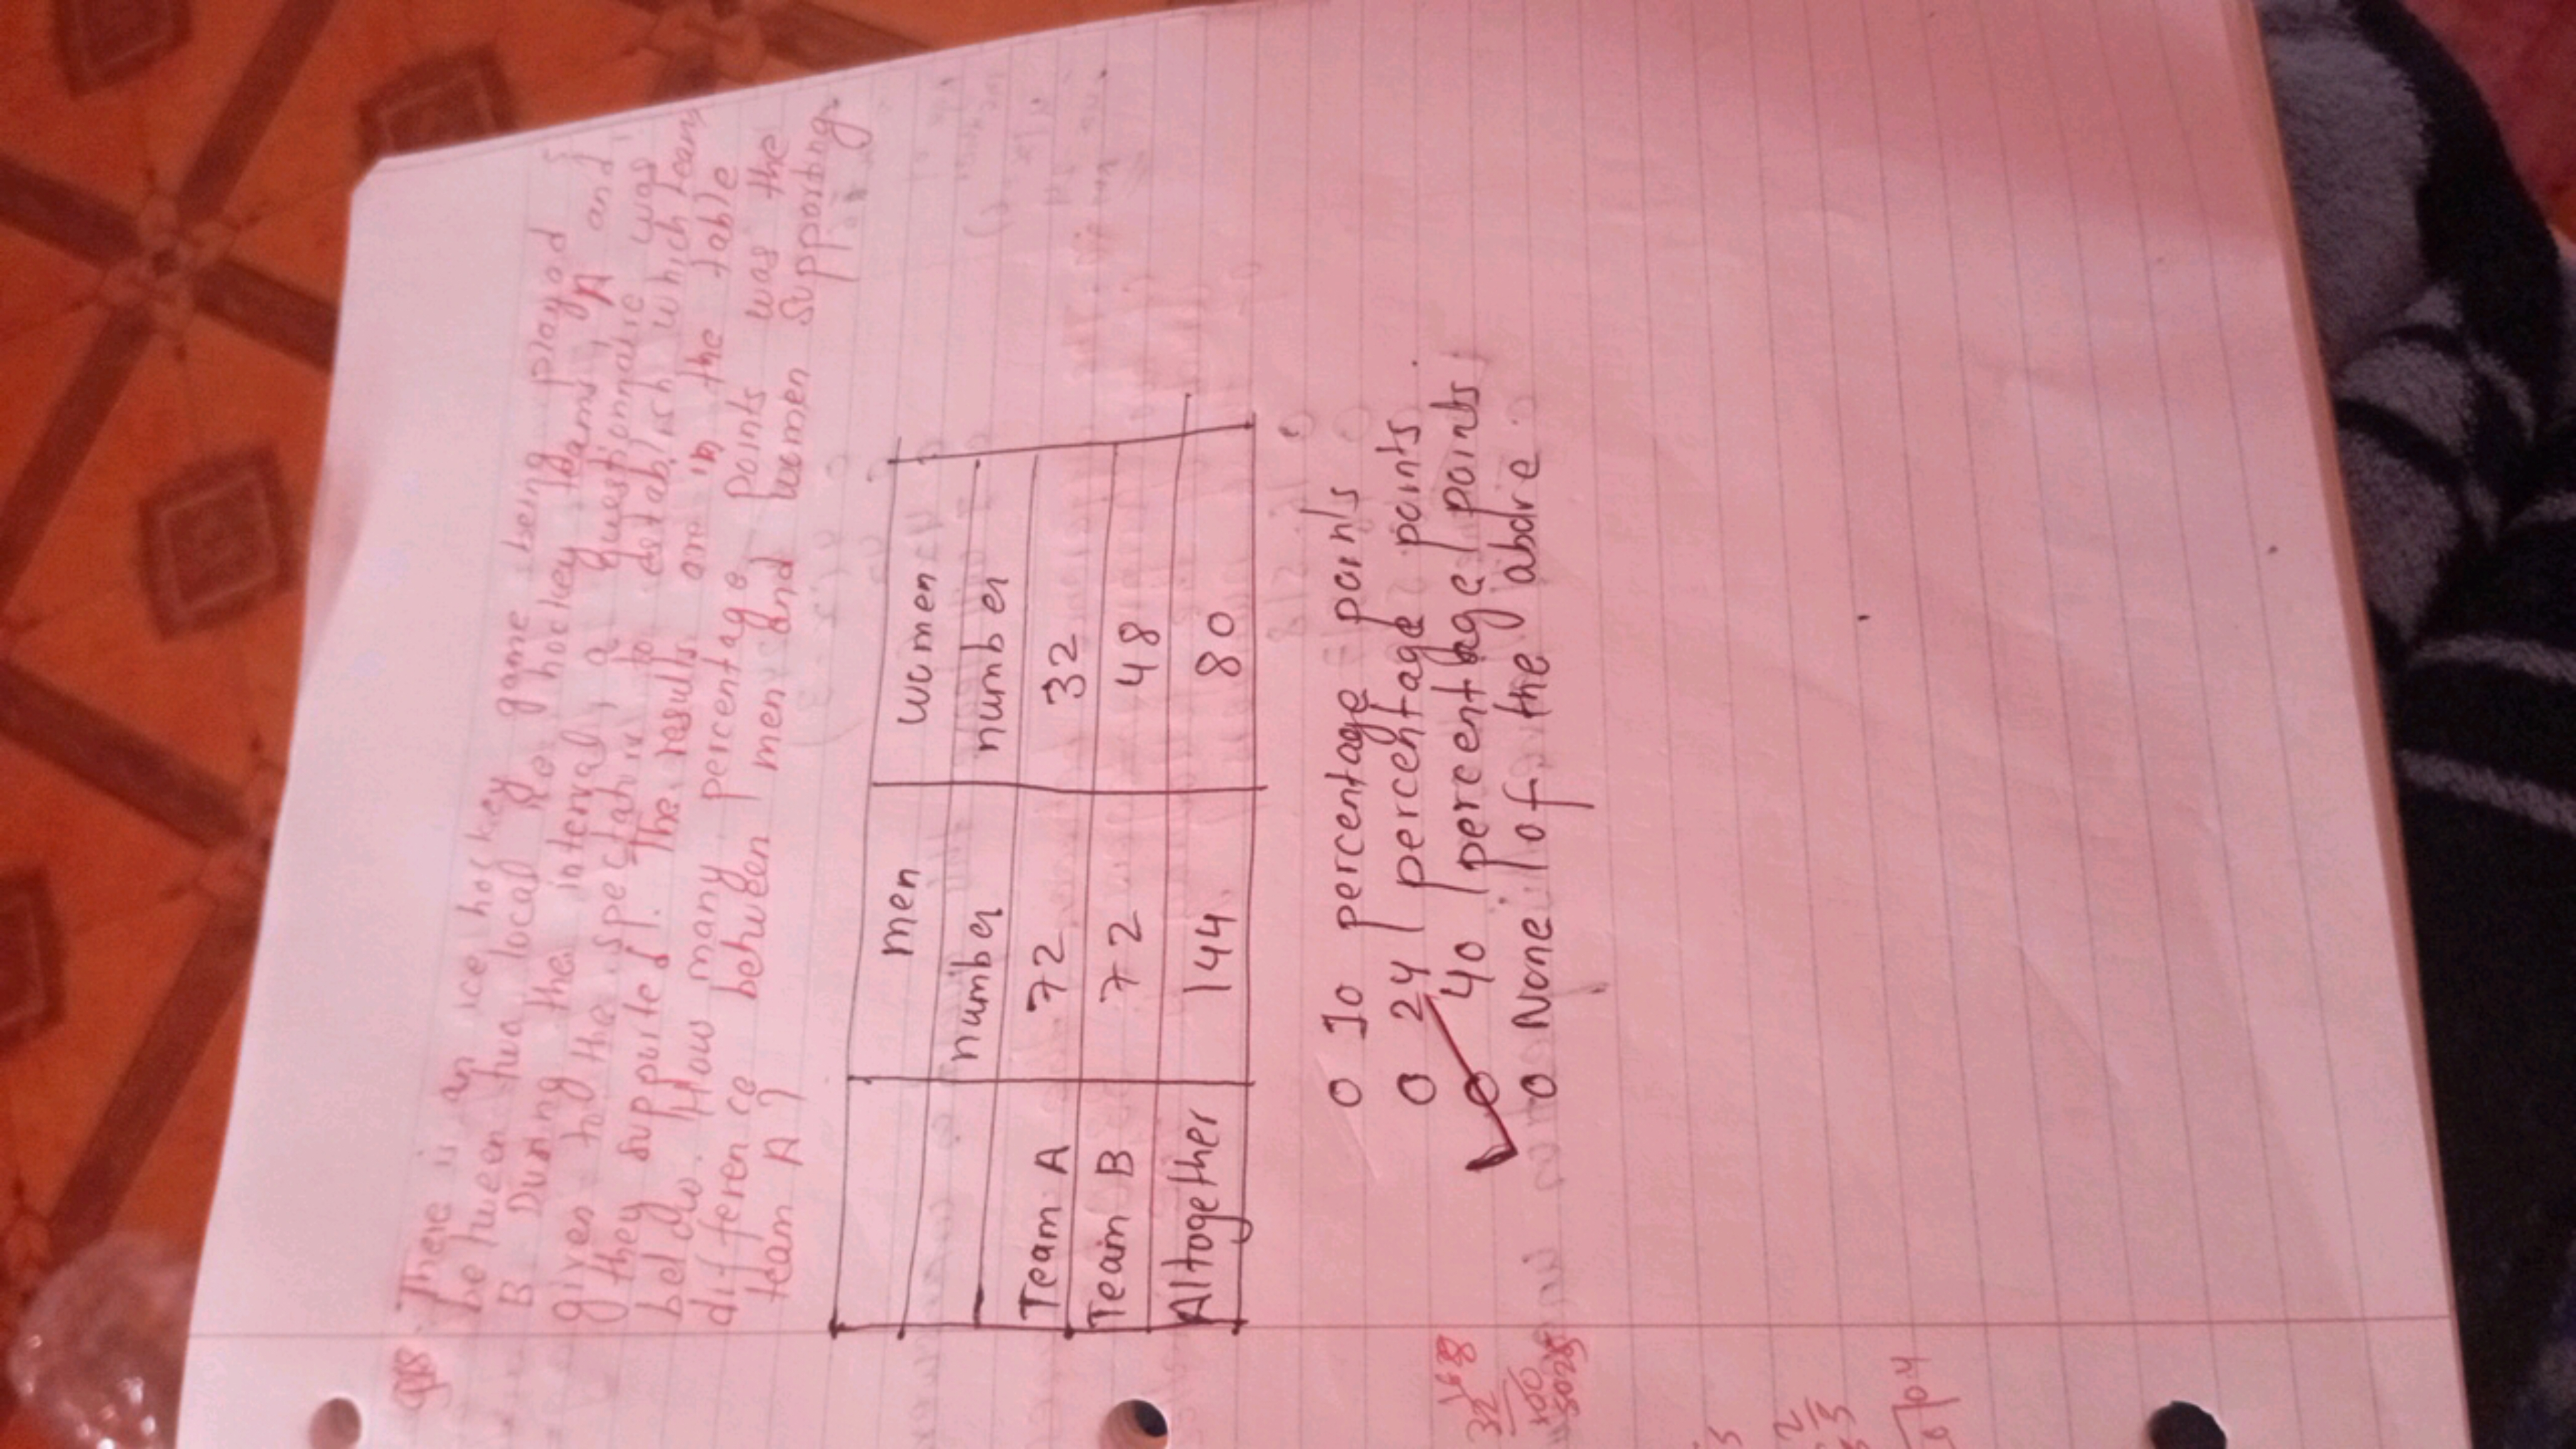 Q18. There is an ice hockey game being played
between two local ice hockey teams, A and
B During the interval, a questionnaire was
given to the spectators to establish which team
they supported. The results are in the table
below. How many percentage points was the
difference between men and women supporting
team A?
men women
number number
Team A 72 32
Team B 72 48
Altogether 144 80
O 10 percentage points
O 24 percentage points
O 40 percentage points
O None of the above
32
100